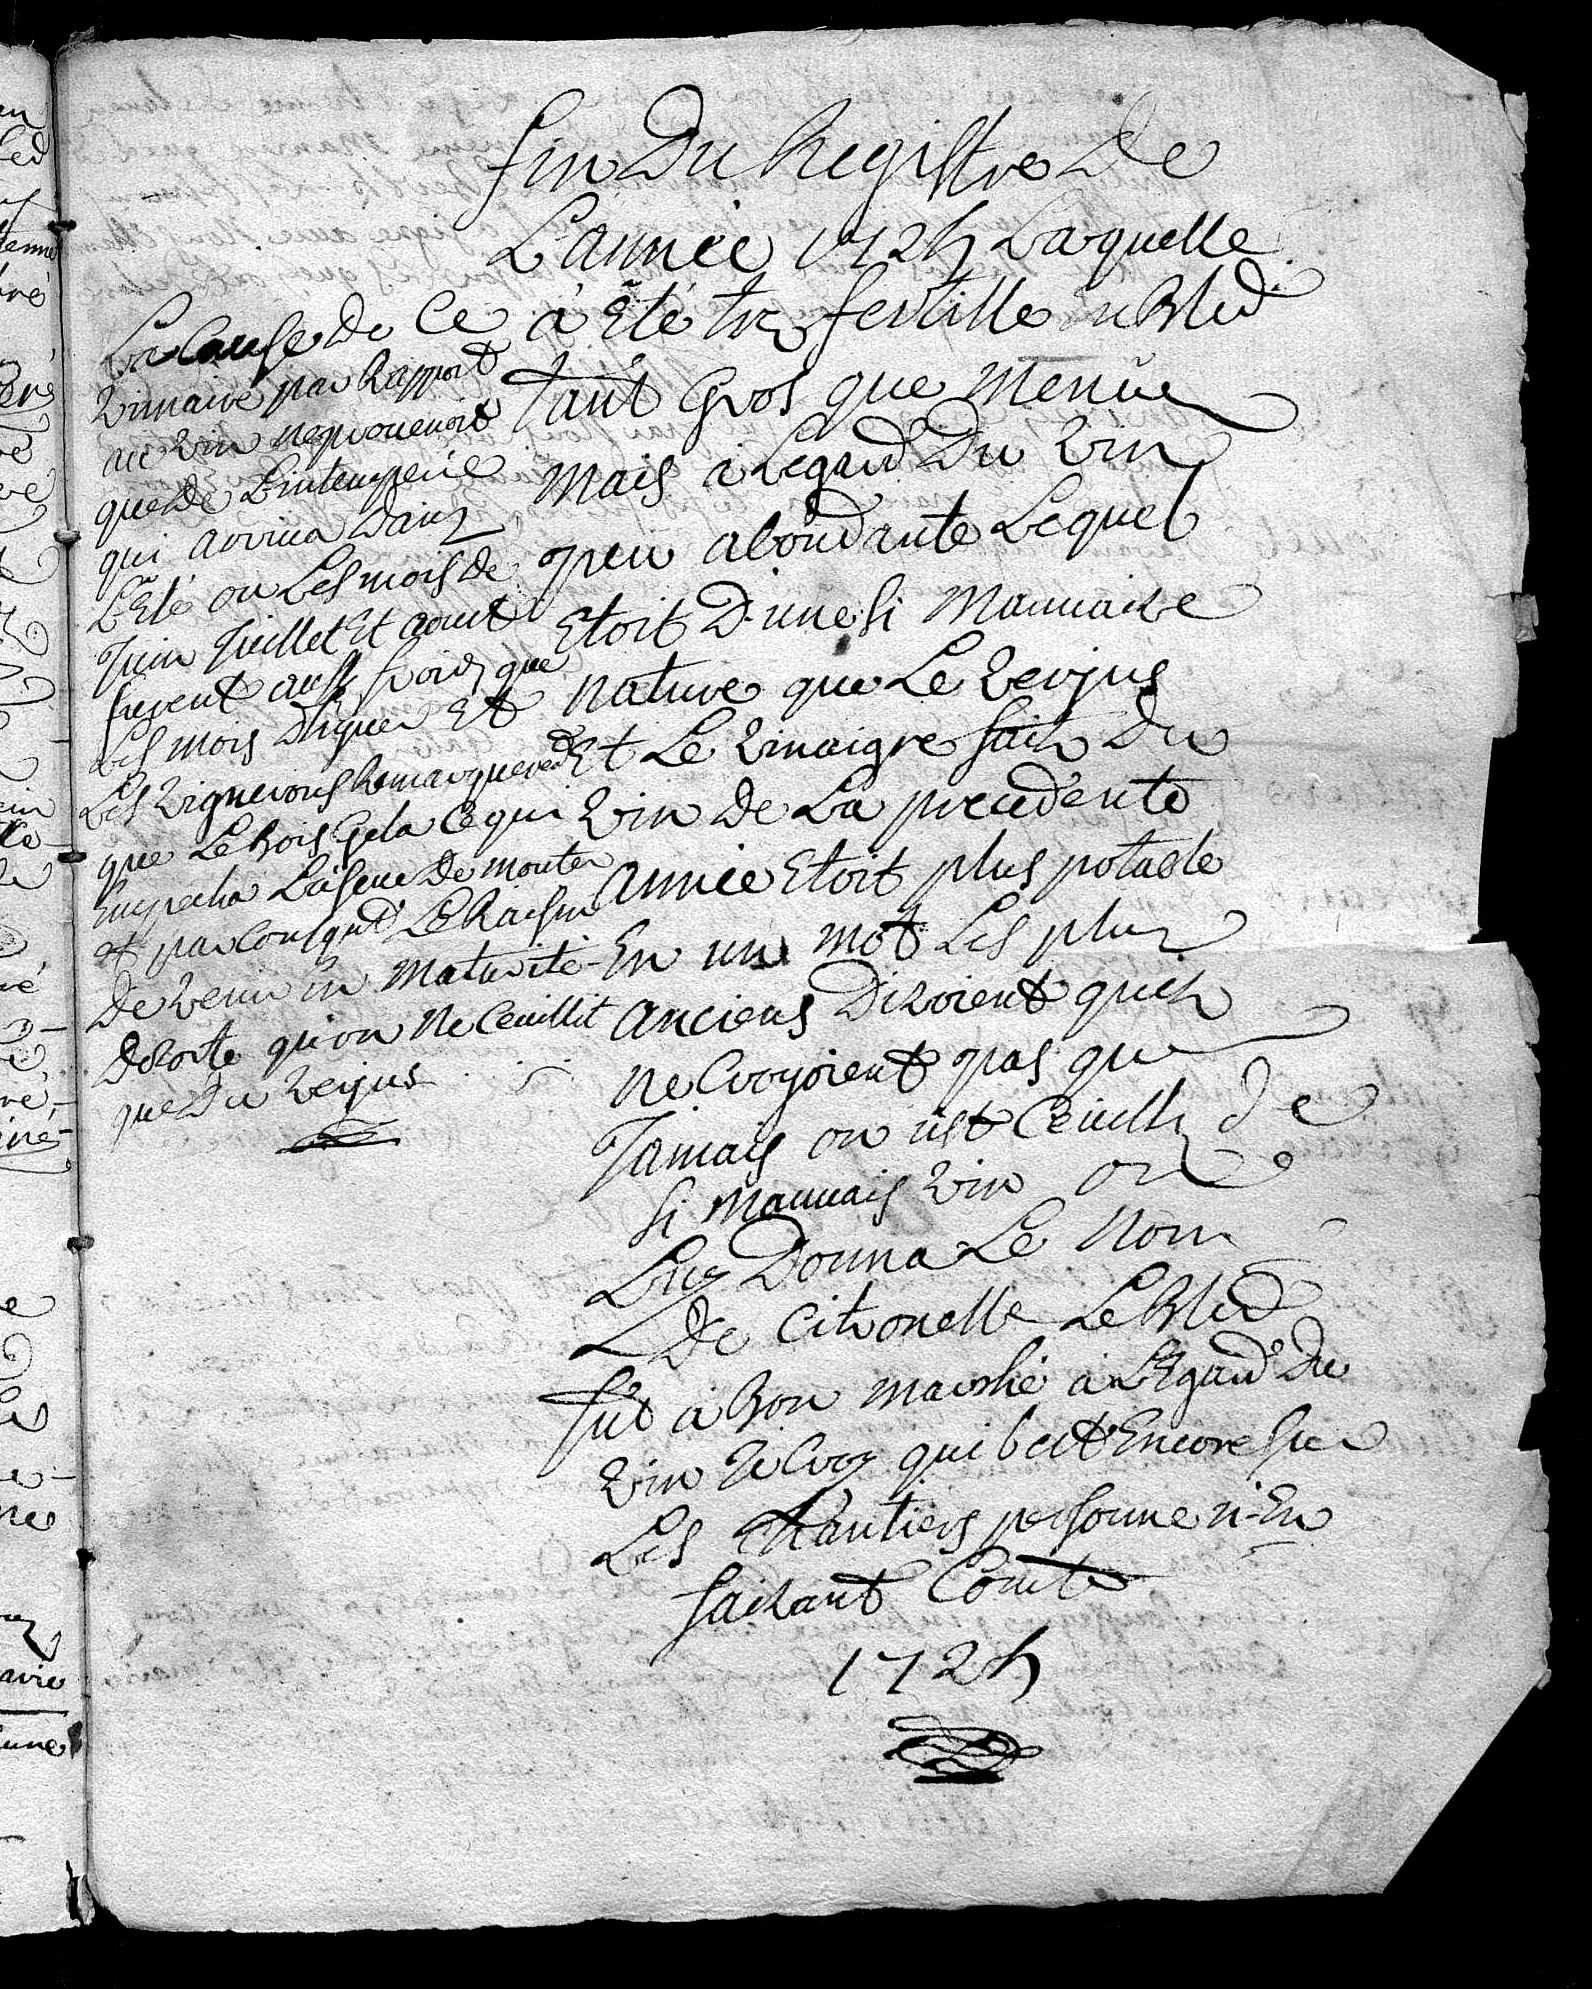 fin Du Registre De
L'année 1725 Laquelle
à Eté tres fertille en Bled
tant Gros que Menüe
Mais a Legard Du Vin
peu abondante Lequel
Etoit D'une si Mauvaize
nature que Le Verjus
Et Le Vinaigre fait Du
Vin De La precedente
année Etoit plus potable
En un mot Les plus
anciens Dizoient qu'ils
ne Croyoient pas que
Jamais on eut Ceuilly de
si mauvais Vin on
Luy Donna Le Nom
De Citronelle Le Bled
fut a Bon marché a L'Egard Du
Vin Je Croy qu'il est Encore sur
Les Chantiers personne n'En
faizant Comte
1725
La Cause De Ce
Vimaire par Rapport
au Vin ne provenoit
que De L'intemperie
qui arriva Dans
L'Eté ou Les mois de
Juin Juillet Et aout
furent aussy froids que
Les mois D'hiver Et
Les Vignerons Remarquerent
que Le Bois Gela Ce qui
Empecha La seve De monter
et par Consequt Le Raisin
De Venir en Maturité
De Sorte qu'on Ne Ceuillit
que Du Verjus